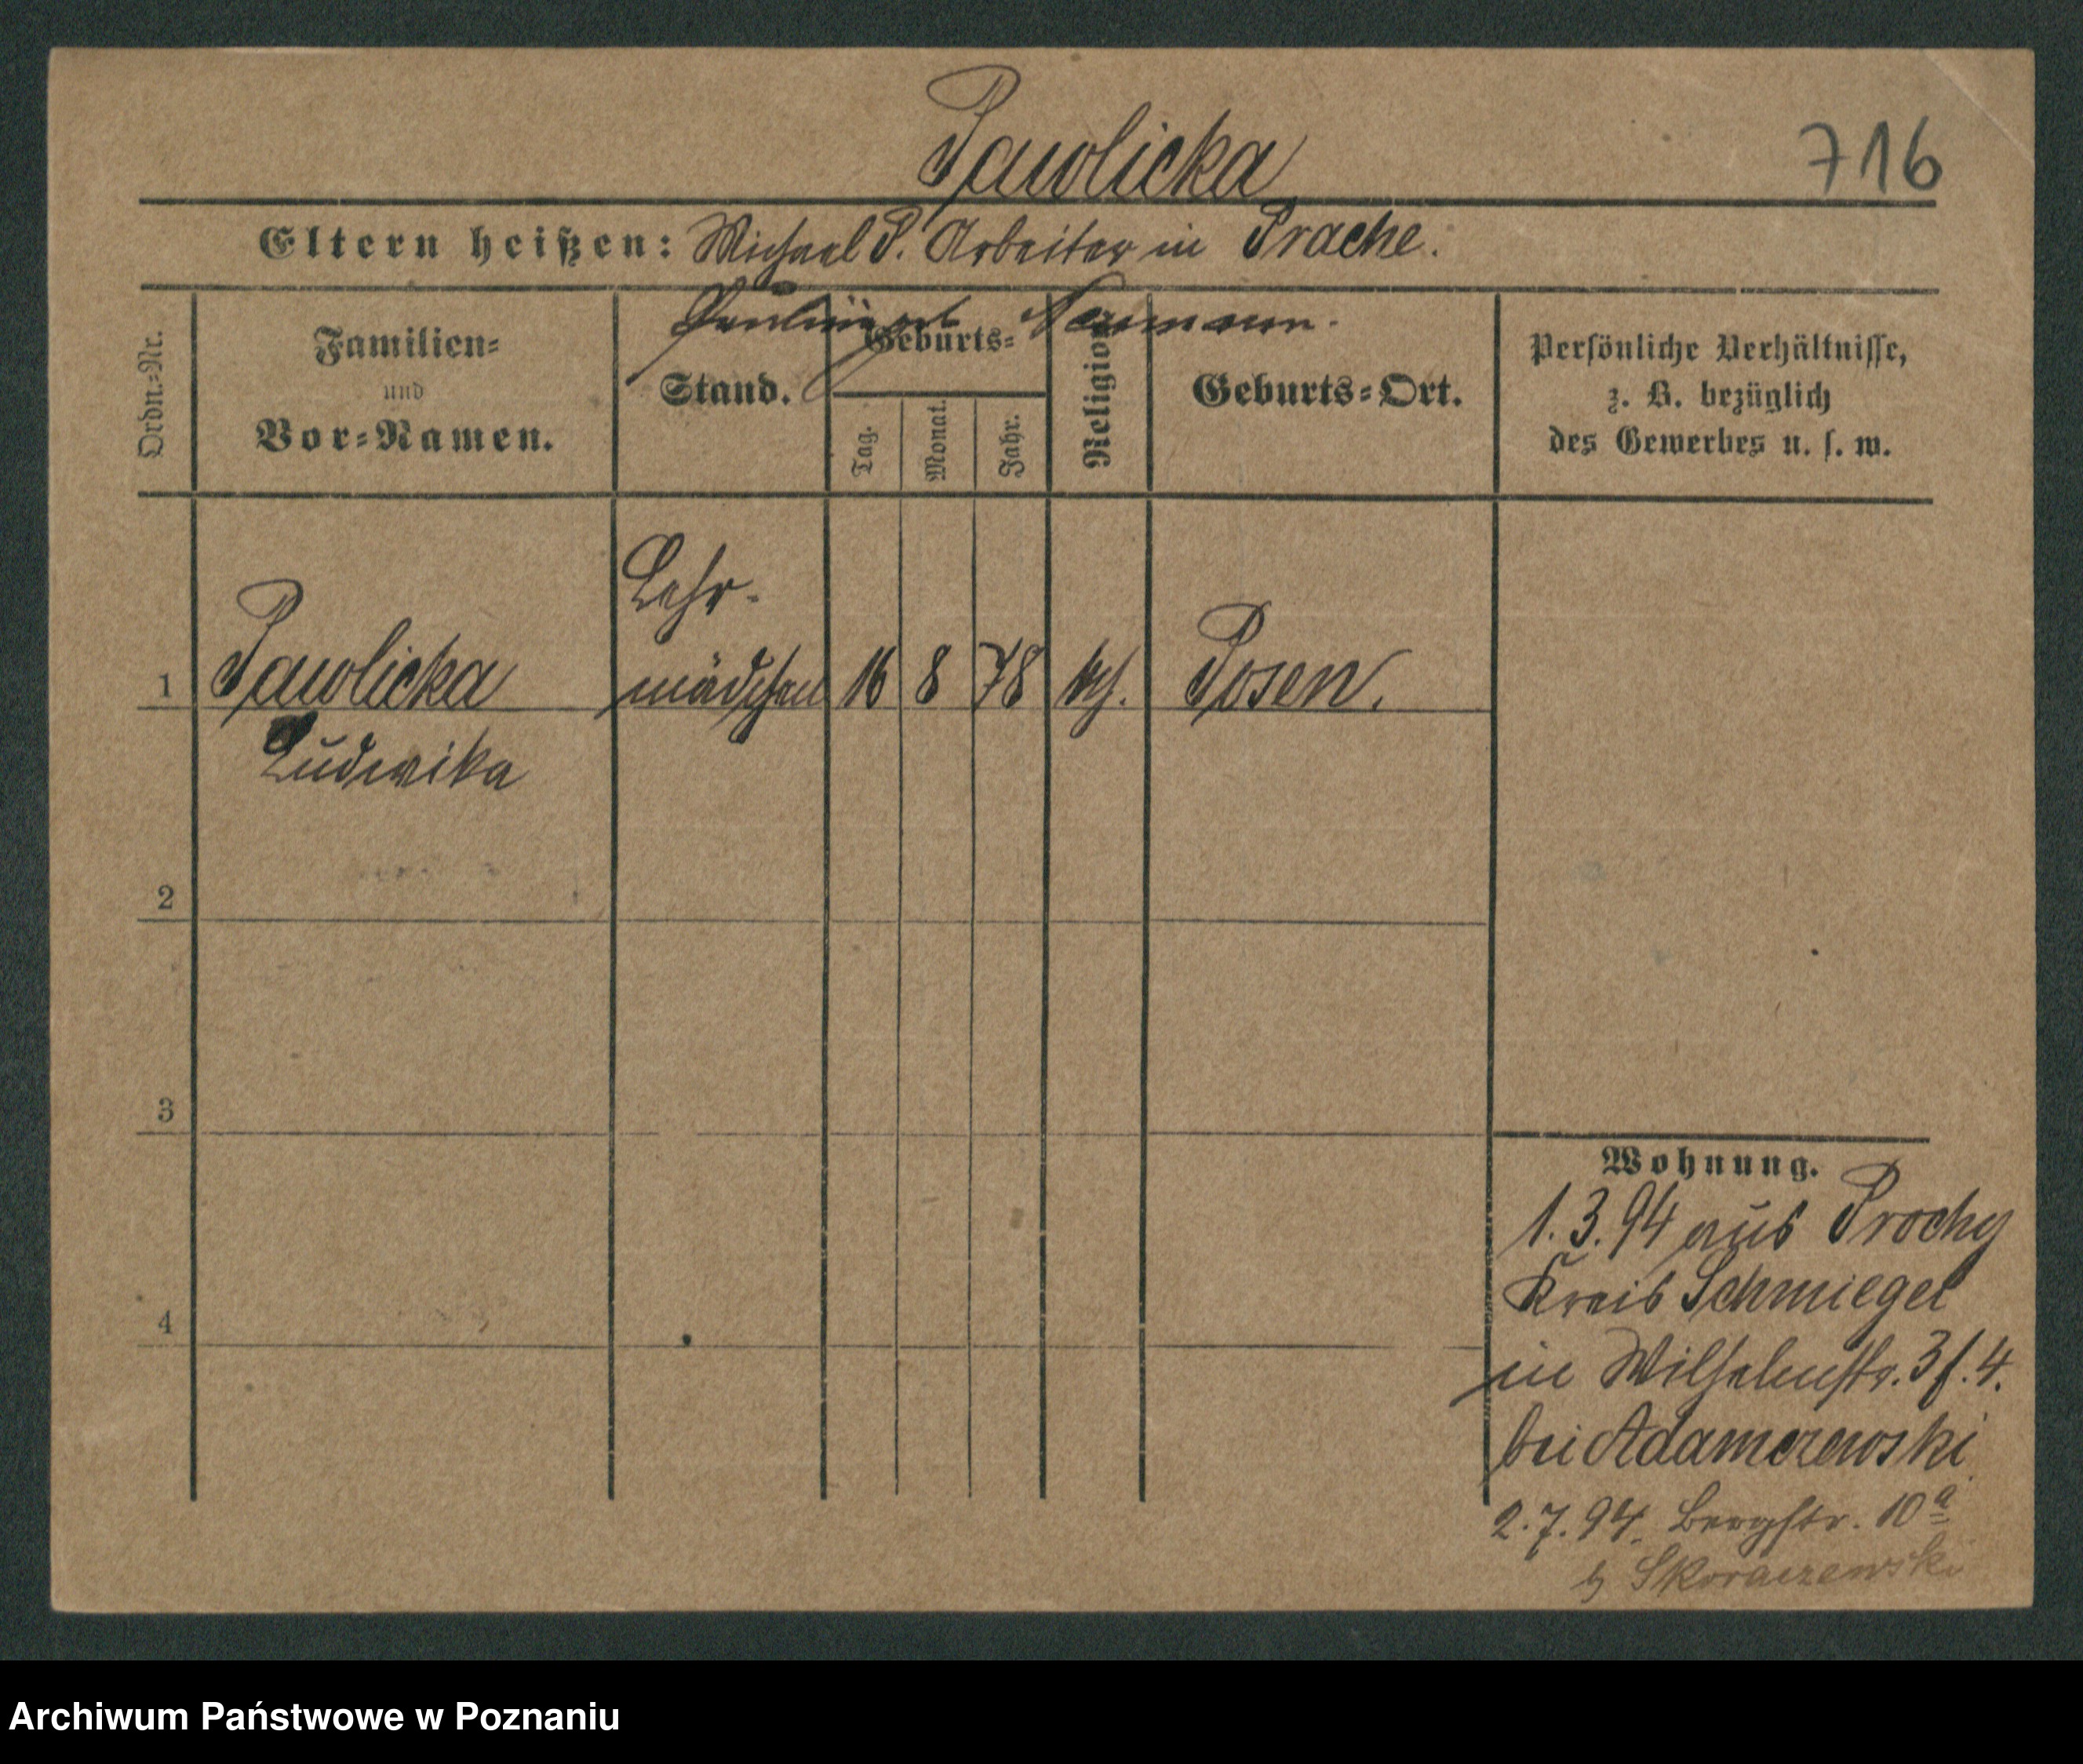 Pawlicka
716
Eltern heißen: Michael P. Arbeiter in Prache.
geb. Neumann.
Ordn.-Nr.
Familien-
und
Vor-Namen.
Stand.
Geburts-
Tag.
Monat.
Jahr.
Religion
Geburts-Ort.
Persönliche Verhältnisse,
z. B. bezüglich
des Gewerbes u. s. w.
Lehr-
1 Pawlicka mädchen 16 8 78 kth. Posen.
Ludwika
2
3
4
Wohnung.
1.3.94 aus Prochy
Kreis Schmiegel
in Wilhelmstr. 3 f. 4.
bei Adamczewski
2.7.94. Bergstr. 10a
b Skoraczewski
Archiwum Państwowe w Poznaniu